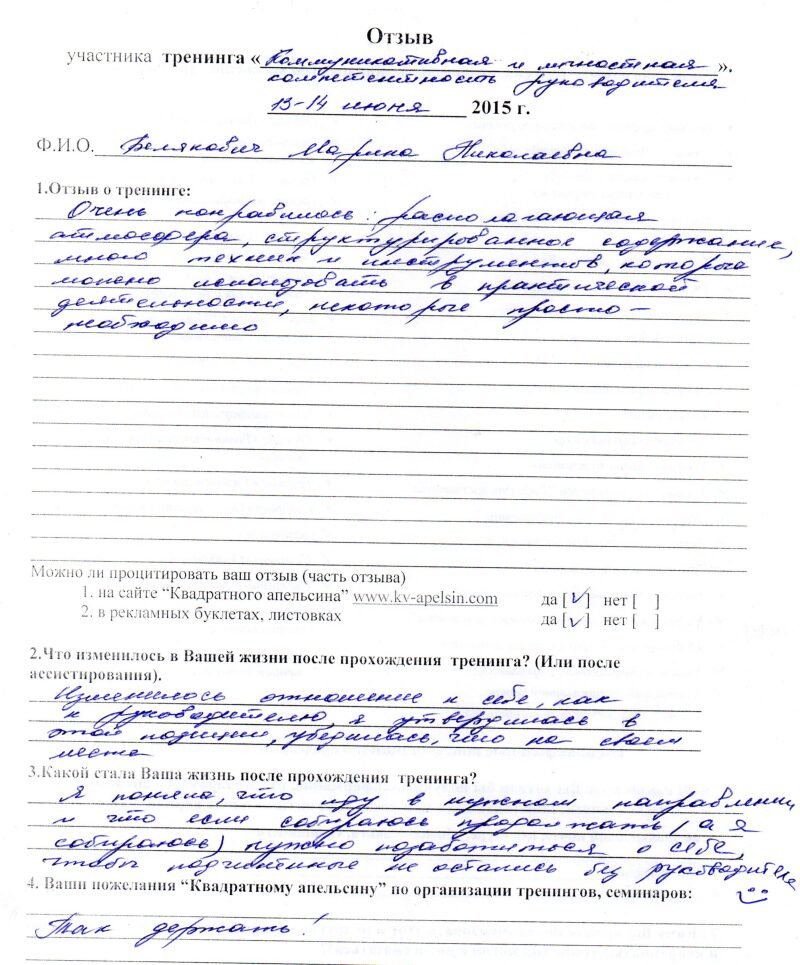 Отзыв
участника тренинга « Коммуникативная и личностная ».
компетентность руководителя
13-14 июня 2015 г.
Ф.И.О. Белякович Марина Николаевна
1.Отзыв о тренинге:
Очень понравилось: располагающая
атмосфера, структурированное содержание,
много техник и инструментов, которые
можно использовать в практической
деятельности, некоторые просто –
необходимо
Можно ли процитировать ваш отзыв (часть отзыва)
1. на сайте “Квадратного апельсина” www.kv-apelsin.com да [✓] нет [ ]
2. в рекламных буклетах, листовках да [✓] нет [ ]
2.Что изменилось в Вашей жизни после прохождения тренинга? (Или после
ассистирования).
Изменилось отношение к себе, как
к руководителю, я утвердилась в
этой позиции, убедилась, что на своем
месте
3.Какой стала Ваша жизнь после прохождения тренинга?
Я поняла, что иду в нужном направлении
и что если собираюсь продолжать (а я
собираюсь) нужно позаботиться о себе,
чтобы подчиненные не остались без руководителя
4. Ваши пожелания “Квадратному апельсину” по организации тренингов, семинаров:
Так держать!